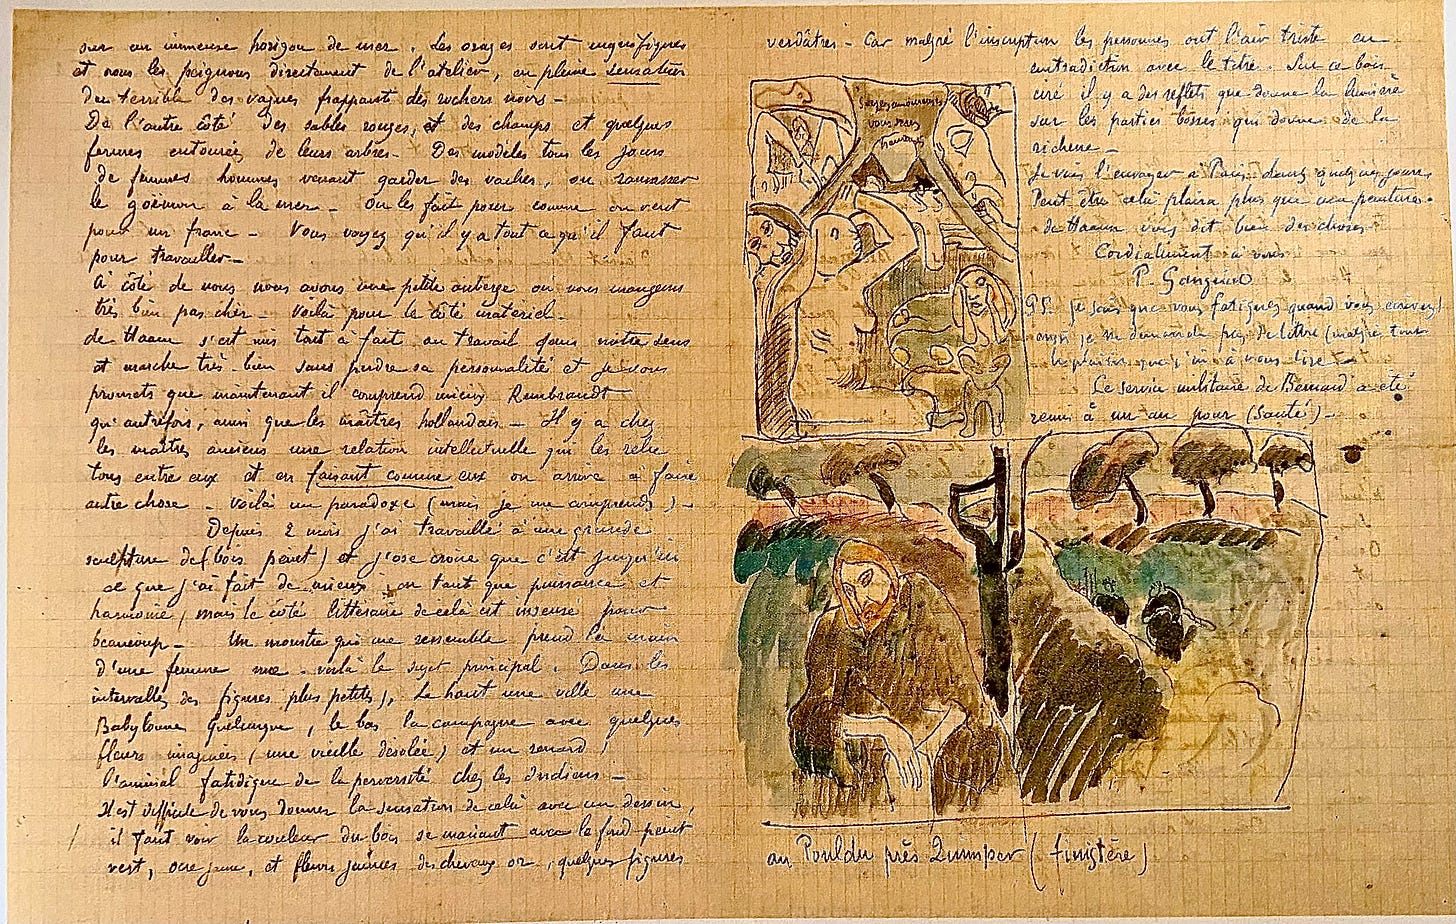 sur un immense horizon de mer. Les orages sont magnifiques
et nous les peignons directement de l'atelier, en pleine sensation
du terrible des vagues frappant des rochers noirs —
De l'autre côté des sables rouges, et des champs et quelques
fermes entourées de leurs arbres — Des modèles tous les jours
de femmes hommes venant garder des vaches, ou ramasser
le goëmon à la mer — On les fait poser comme on veut
pour un franc — Vous voyez qu'il y a tout ce qu'il faut
pour travailler —
À côté de nous nous avons une petite auberge où nous mangeons
très bien pas cher — Voilà pour le côté matériel —
de Haan s'est mis tout à fait au travail dans notre sens
et marche très bien sans perdre sa personnalité et je vous
promets que maintenant il comprend mieux Rembrandt
qu'autrefois, ainsi que les maîtres hollandais — Il y a chez
les maîtres anciens une relation intellectuelle qui les relie
tous entre eux et en faisant comme eux on arrive à faire
autre chose — Voilà un paradoxe (mais je me comprends) —
Depuis 2 mois j'ai travaillé à une grande
sculpture de (bois peint) et j'ose croire que c'est jusqu'ici
ce que j'ai fait de mieux, en tant que puissance et
harmonie, mais le côté littéraire de cela est insensé pour
beaucoup — Un monstre qui me ressemble prend la main
d'une femme nue — voilà le sujet principal. Dans les
intervalles des figures plus petites, Le haut une ville une
Babylone quelconque, le bas la campagne avec quelques
fleurs imaginées (une vieille désolée) et un renard,
l'animal fatidique de la perversité chez les Indiens —
Il est difficile de vous donner la sensation de celà avec un dessin,
il faut voir la couleur du bois se mariant avec le fond peint
vert, ocre jaune, et fleurs jaunes des cheveux or, quelques figures
verdâtres — Car malgré l'inscription les personnes ont l'air triste en
contradiction avec le titre. Sur ce bois
ciré il y a des reflets que donne la lumière
sur les parties bosses qui donne de la
richesse —
Je vais l'envoyer à Paris dans quelques jours,
Peut être celà plaira plus que ma peinture.
de Haan vous dit bien des choses
Cordialement à vous
P. Gauguin
PS. Je sais que vous fatiguez quand vous écrivez
aussi je ne demande pas de lettre (malgré tout
le plaisir que j'ai à vous lire —
Le service militaire de Bernard a été
remis à un an pour (santé) —
Soyez amoureuses
vous serez
heureuses
au Pouldu près Quimper (Finistère)